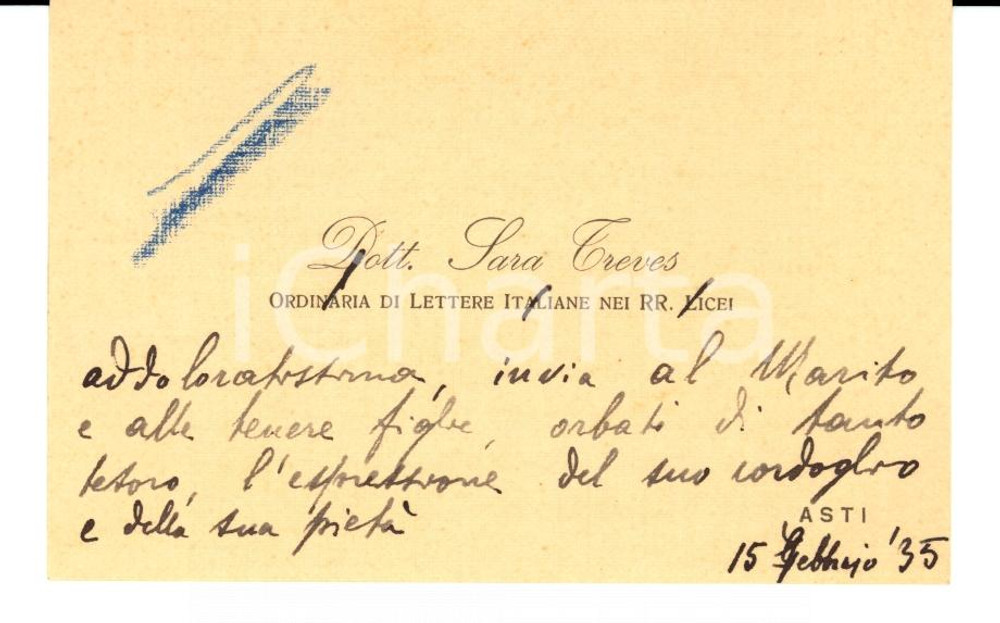 Dott. Sara Treves
ORDINARIA DI LETTERE ITALIANE NEI RR. LICEI
iCharta
addoloratissima, invia al Marito
e alle tenere figlie, orbati di tanto
tesoro, l'espressione del suo cordoglio
e della sua pietà
ASTI
15 Febbrajo '35